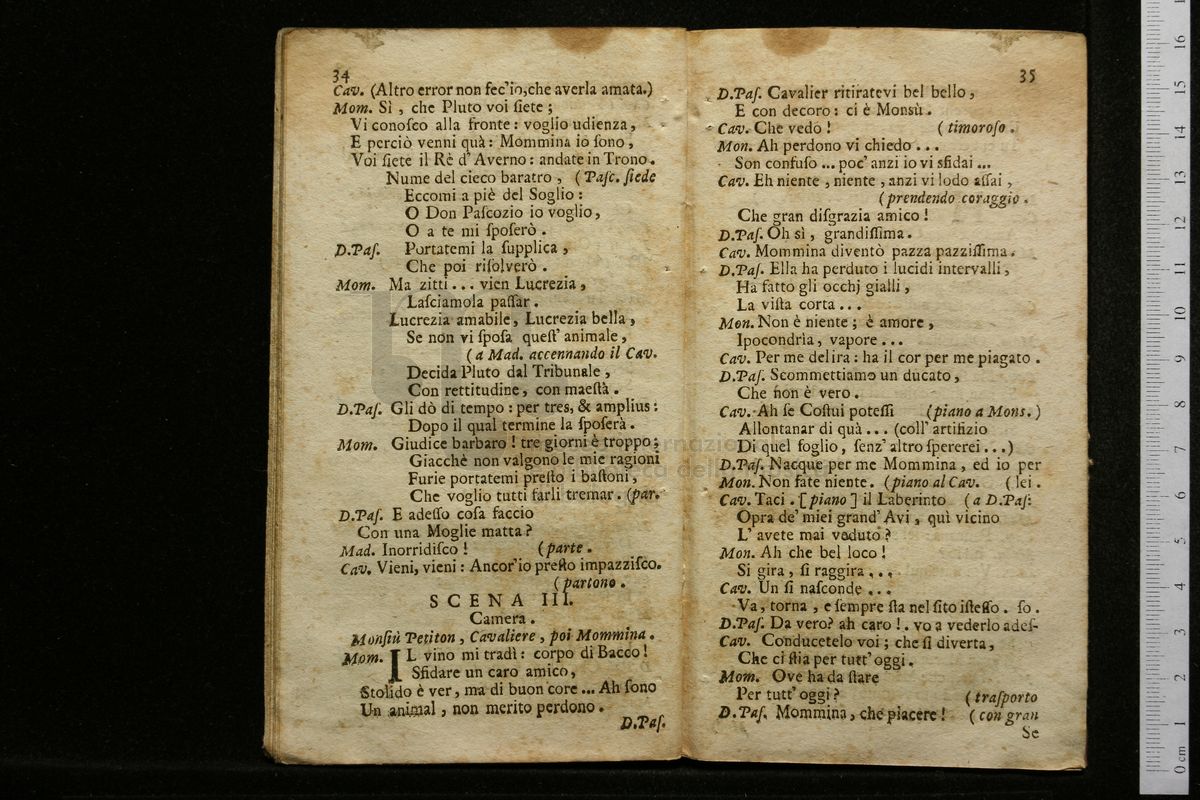 34
Cav. (Altro error non fec'io,che averla amata.)
Mom. Sì , che Pluto voi ſiete ;
Vi conoſco alla fronte : voglio udienza ,
E perciò venni quà : Mommina io ſono ,
Voi ſiete il Rè d' Averno : andate in Trono.
Nume del cieco baratro , (Paſc. ſiede
Eccomi a piè del Soglio :
O Don Paſcozio io voglio ,
O a te mi ſpoſerò .
D.Paſ. Portatemi la ſupplica ,
Che poi riſolverò .
Mom. Ma zitti ... vien Lucrezia ,
Laſciamola paſſar .
Lucrezia amabile , Lucrezia bella ,
Se non vi ſpoſa queſt' animale ,
(a Mad. accennando il Cav.
Decida Pluto dal Tribunale ,
Con rettitudine , con maeſtà .
D.Paſ. Gli dò di tempo : per tres, & amplius :
Dopo il qual termine la ſpoſerà .
Mom. Giudice barbaro ! tre giorni è troppo ;
Giacchè non valgono le mie ragioni
Furie portatemi preſto i baſtoni ,
Che voglio tutti farli tremar . (par.
D.Paſ. E adeſſo coſa faccio
Con una Moglie matta ?
Mad. Inorridiſco ! (parte .
Cav. Vieni, vieni : Ancor'io preſto impazziſco.
(partono .
SCENA III.
Camera .
Monſiù Petiton , Cavaliere , poi Mommina .
Mom. IL vino mi tradì : corpo di Bacco !
Sfidare un caro amico ,
Stolido è ver , ma di buon core ... Ah ſono
Un animal , non merito perdono .
D.Paſ.
35
D.Paſ. Cavalier ritiratevi bel bello ,
E con decoro : ci è Monsù .
Cav. Che vedo ! (timoroſo .
Mon. Ah perdono vi chiedo ...
Son confuſo ... poc' anzi io vi sfidai ...
Cav. Eh niente , niente , anzi vi lodo aſſai ,
(prendendo coraggio .
Che gran diſgrazia amico !
D.Paſ. Oh sì , grandiſſima .
Cav. Mommina diventò pazza pazziſſima .
D.Paſ. Ella ha perduto i lucidi intervalli ,
Ha fatto gli occhj gialli ,
La viſta corta ...
Mon. Non è niente ; è amore ,
Ipocondrìa , vapore ...
Cav. Per me delira : ha il cor per me piagato .
D.Paſ. Scommettiamo un ducato ,
Che non è vero .
Cav. Ah ſe Coſtui poteſſi (piano a Mons.)
Allontanar di quà ... (coll' artifizio
Di quel foglio , ſenz' altro ſpererei ...)
D.Paſ. Nacque per me Mommina , ed io per
Mon. Non fate niente . (piano al Cav. (lei .
Cav. Taci . [piano] il Laberinto (a D.Paſ:
Opra de' miei grand' Avi , quì vicino
L' avete mai veduto ?
Mon. Ah che bel loco !
Si gira , ſi raggira ...
Cav. Un ſi naſconde ...
Va , torna , e ſempre ſta nel ſito iſteſſo . ſo .
D.Paſ. Da vero? ah caro ! . vo a vederlo adeſ-
Cav. Conducetelo voi ; che ſi diverta ,
Che ci ſtia per tutt' oggi .
Mom. Ove ha da ſtare
Per tutt' oggi ? (traſporto
D.Paſ. Mommina , che piacere ! (con gran
Se